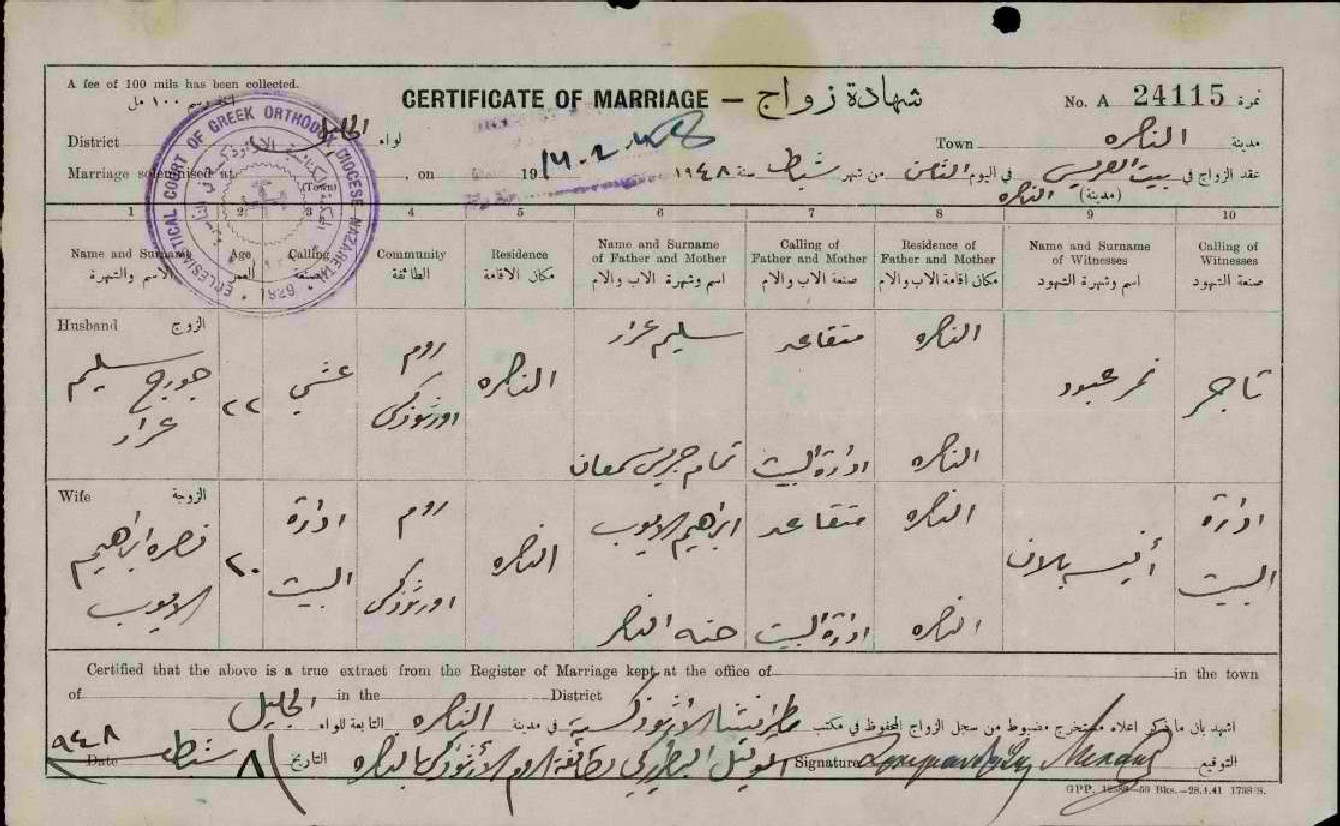 A fee of 100 mils has been collected.
أخذ رسم ١٠٠ مل
CERTIFICATE OF MARRIAGE — شهادة زواج
No. A 24115 نمرة
District الجليل لواء
Town الناصره مدينة
Marriage solemnised at (Town), on 19
عقد الزواج في بيت العريس في اليوم الثامن من شهر شباط سنة ١٩٤٨
(مدينة) الناصره
ECCLESIASTICAL COURT OF GREEK ORTHODOX DIOCESE NAZARETH
1 2 3 4 5 6 7 8 9 10
Name and Surname Age Calling Community Residence Name and Surname of Father and Mother Calling of Father and Mother Residence of Father and Mother Name and Surname of Witnesses Calling of Witnesses
الاسم والشهرة العمر الصنعة الطائفة مكان الاقامة اسم وشهرة الاب والام صنعة الاب والام مكان اقامة الاب والام اسم وشهرة الشهود صنعة الشهود
Husband الزوج
جورج سليم
٢٢
روم
اورثوذكسي
الناصره
متقاعد
الناصره
نمر عبود
تاجر
ادارة البيت
الناصره
Wife الزوجة
نصره ابراهيم
الايوب
٢٠
ادارة
البيت
روم
اورثوذكسي
الناصره
ابراهيم الايوب
متقاعد
الناصره
ادارة
البيت
حنه
ادارة البيت
الناصره
Certified that the above is a true extract from the Register of Marriage kept at the office of in the town
of in the District
اشهد بان ما ذكر اعلاه مستخرج مضبوط من سجل الزواج المحفوظ في مكتب مطرانية الارثوذكسية في مدينة الناصره التابعة للواء الجليل
Date ٨ شباط ٩٤٨ التاريخ
Signature التوقيع
GPP. 12588—50 Bks.—28.4.41 1798 S.